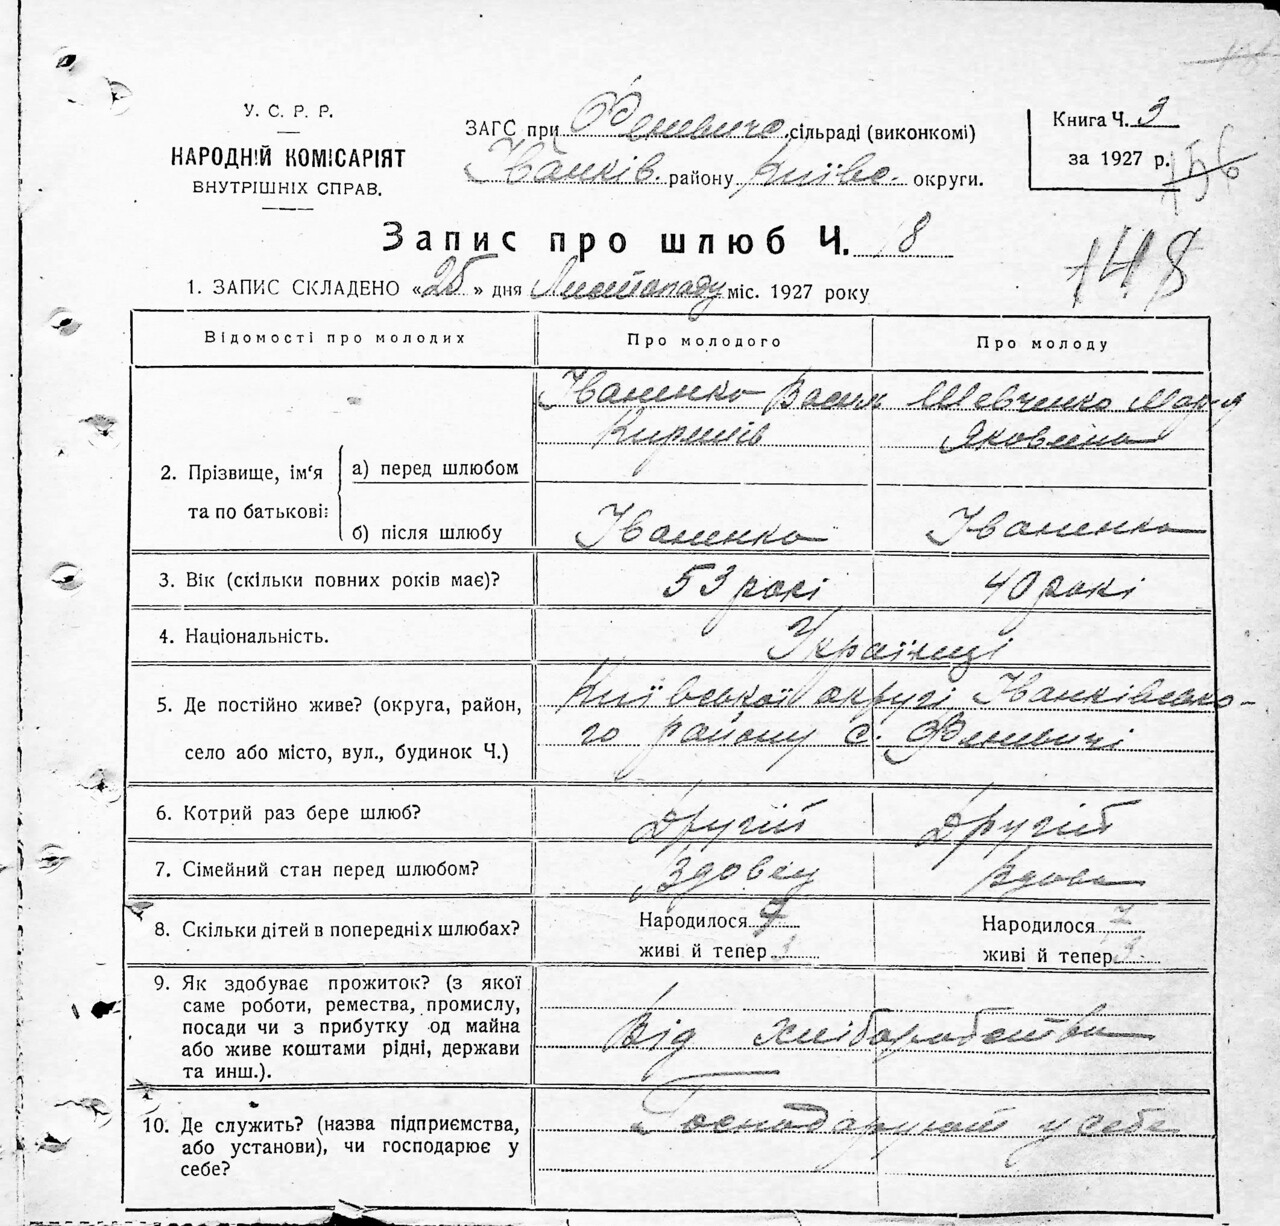 У. С. Р. Р.
НАРОДНІЙ КОМІСАРІЯТ
ВНУТРІШНІХ СПРАВ.
ЗАГС при Феневичо. сільраді (виконкомі)
Іванків. району Київс. округи.
Книга Ч. 3
за 1927 р.
156
148
Запис про шлюб Ч. 18
1. ЗАПИС СКЛАДЕНО «25» дня Листопаду міс. 1927 року
Відомості про молодих
Про молодого
Про молоду
2. Прізвище, ім'я та по батькові:
а) перед шлюбом
Іваненко Васил
Шевченко Марія
Яковлівна
б) після шлюбу
Іваненко
Іваненко
3. Вік (скільки повних років має)?
53 рокі
40 рокі
4. Національність.
Українці
5. Де постійно живе? (округа, район,
село або місто, вул., будинок Ч.)
Київської округі Іванківсько-
го району с. Феневичі
6. Котрий раз бере шлюб?
Другій
Другій
7. Сімейний стан перед шлюбом?
Здовец
Вдова
8. Скільки дітей в попередніх шлюбах?
Народилося 7
живі й тепер
Народилося 7
живі й тепер 3
9. Як здобуває прожиток? (з якої
саме роботи, ремества, промислу,
посади чи з прибутку од майна
або живе коштами рідні, держави
та инш.).
Від хліборобства
10. Де служить? (назва підприємства,
або установи), чи господарює у
себе?
Господарюют у себе